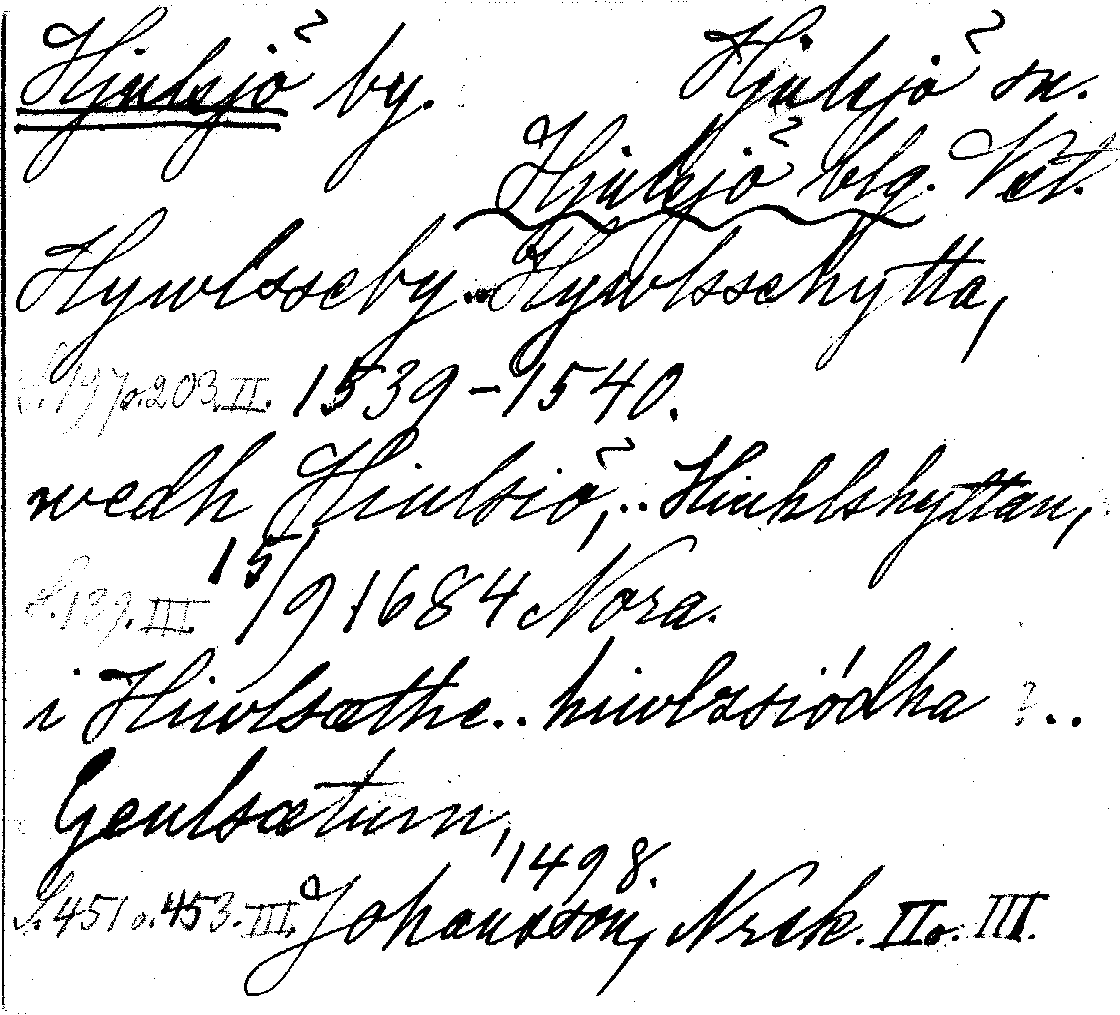 Hjulsjö by. Hjulsjö sn.
Hjulsjö blg. Vstl.
Hywlsseby .. Hywlssehytta,
S. 197 o. 203. II. 1539-1540.
wedh Hiulsiö, .. Hiuhlshyttan,
S. 139. III. 15/9 1684 Nora.
i Hiwlsæthe .. hiwlzsiödha ? ..
Geulsætum, 1498.
S. 451 o. 453. III. Johansson, Nrck. II o. III.